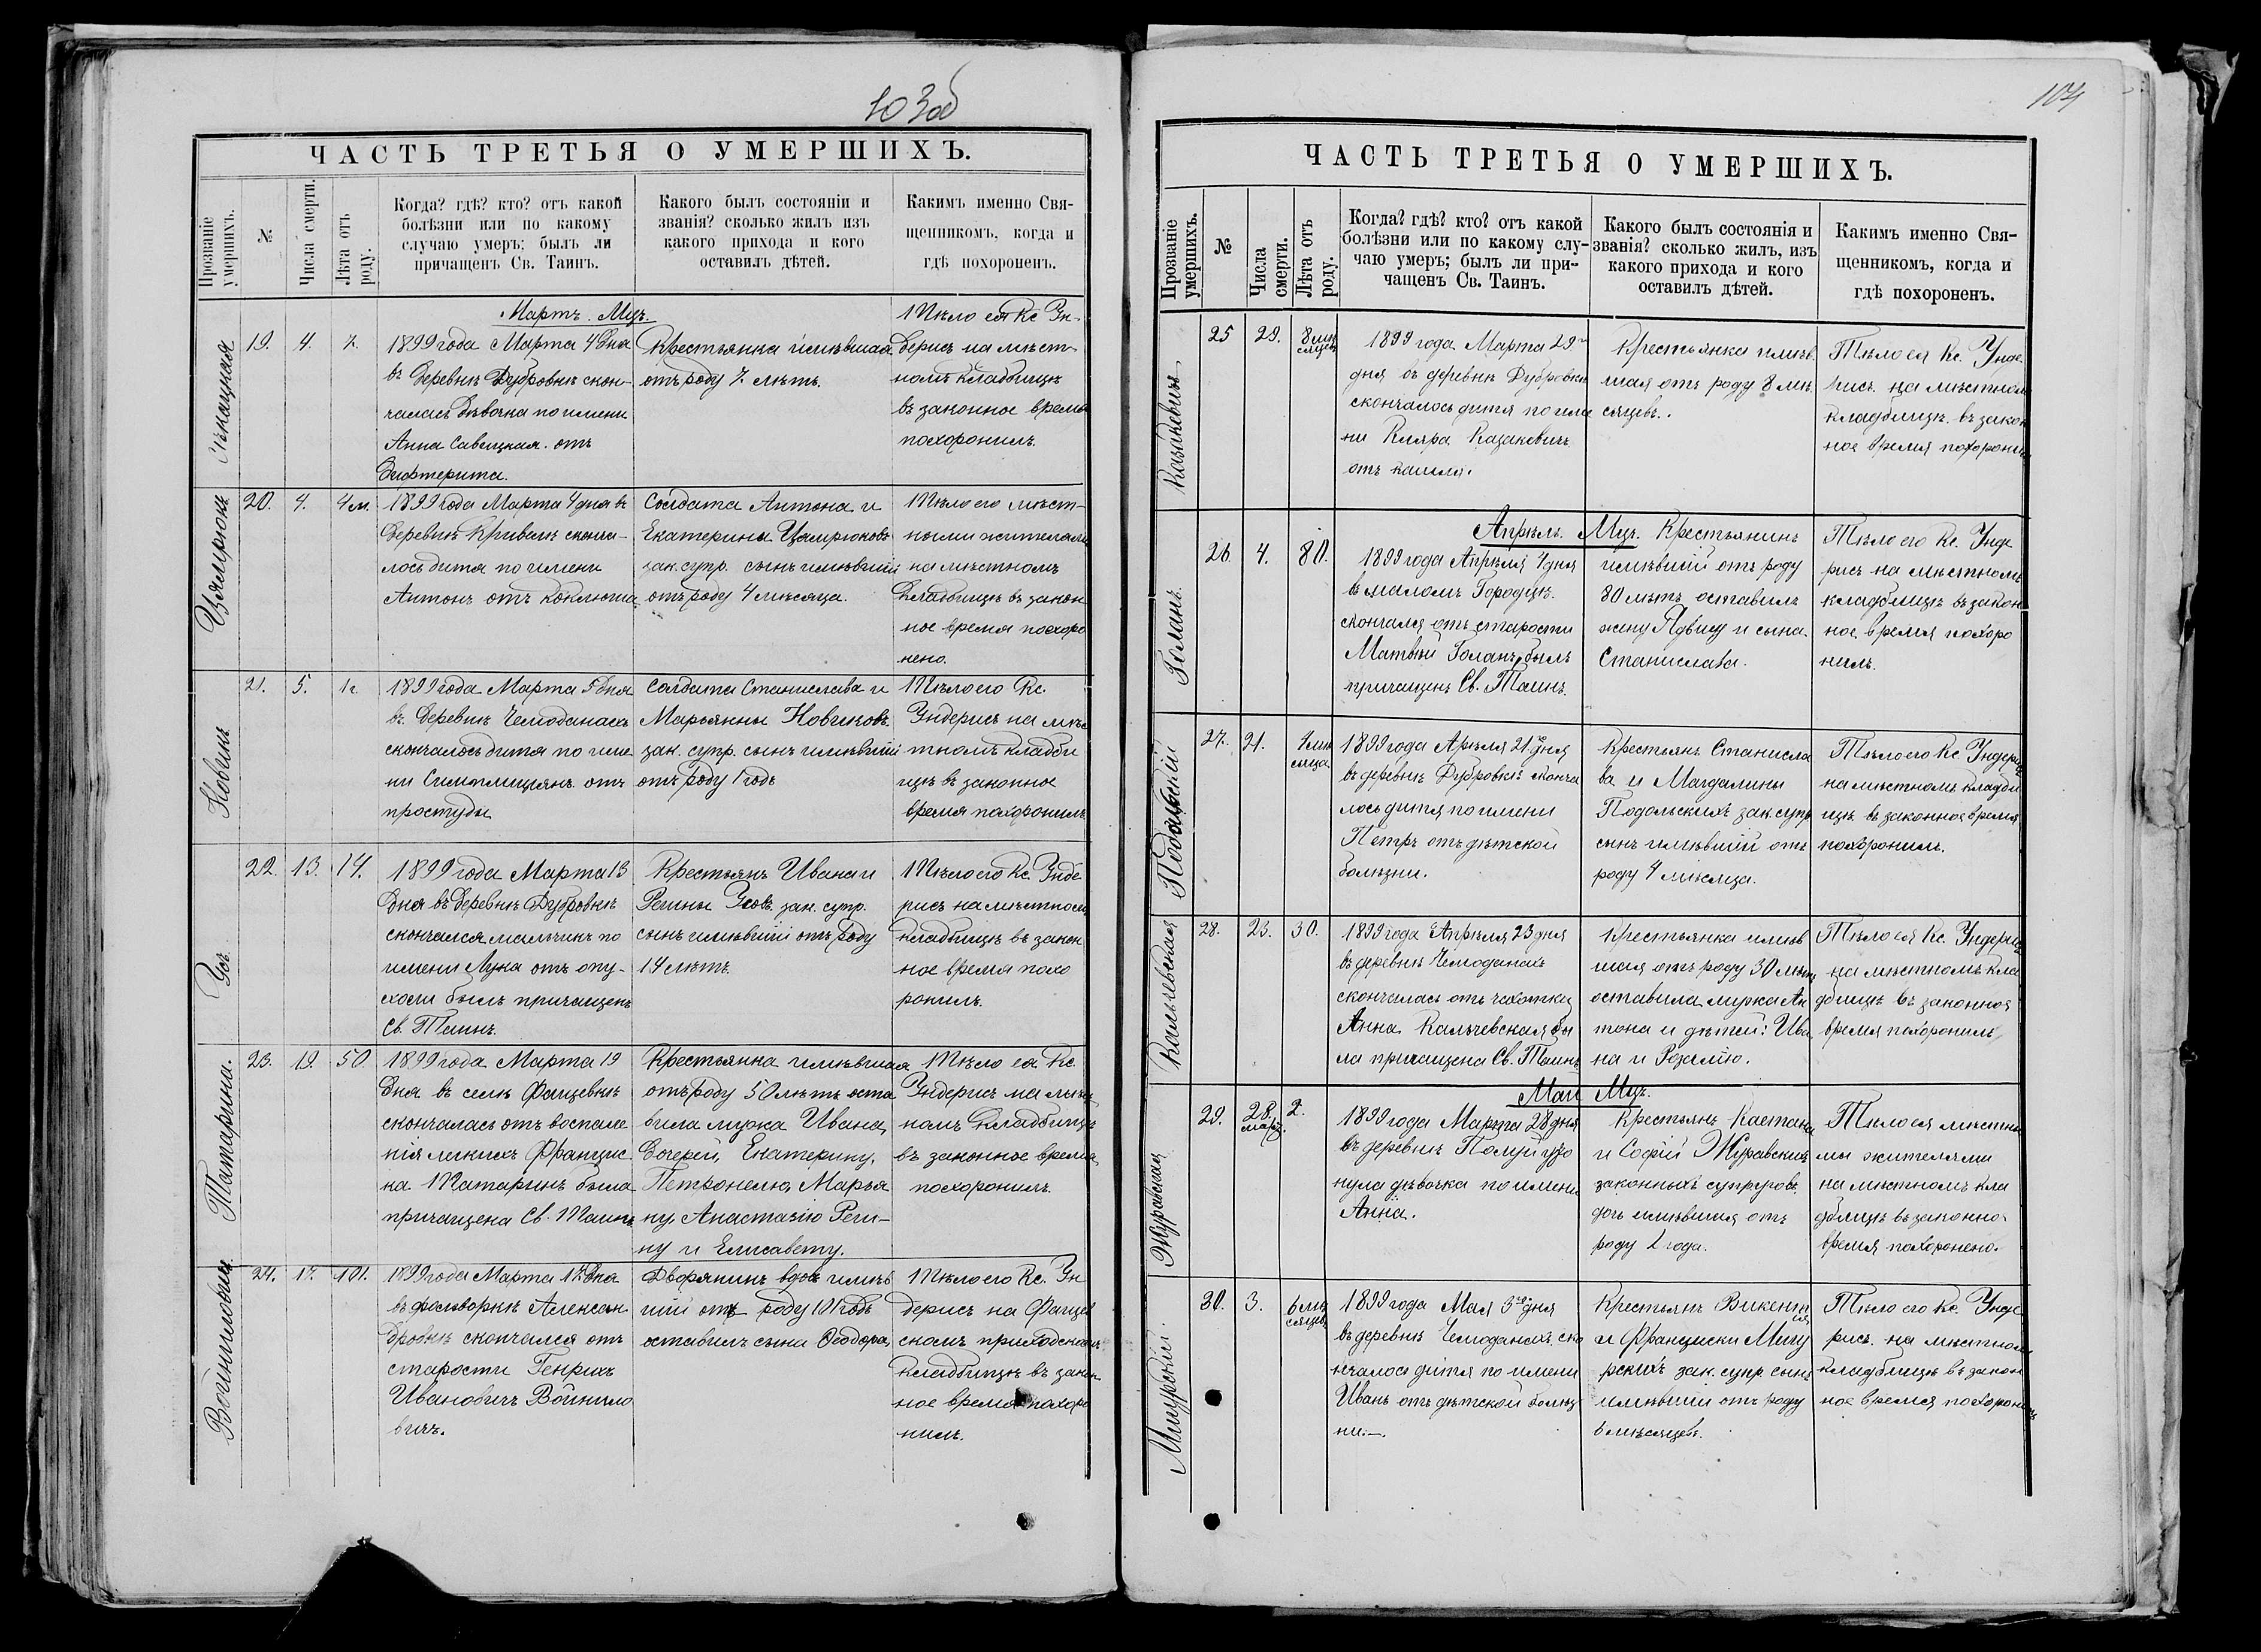 103об
ЧАСТЬ ТРЕТЬЯ О УМЕРШИХЪ.
Прозваніе умершихъ.
№
Числа смерти.
Лѣта отъ роду.
Когда? гдѣ? кто? отъ какой
болѣзни или по какому
случаю умеръ; былъ ли
причащенъ Св. Таинъ.
Какого былъ состояніи и
званія? сколько жилъ изъ
какого прихода и кого
оставилъ дѣтей.
Какимъ именно Свя-
щенникомъ, когда и
гдѣ похороненъ.
Мартъ. Мцъ.
19. 4. 7.
1899 года Марта 4 дня
въ деревнѣ Дубровкѣ скон-
чалась дѣвочка по имени
Анна Савицкая. отъ
дифтерита.
Крестьянка имѣвшая
отъ роду 7 лѣтъ.
Тѣло ея Кс Ун-
дерисъ на мѣст-
номъ кладбищѣ
въ законное время
похоронилъ.
Цямрюкъ
20. 4. 4 м.
1899 года Марта 4 дня въ
деревнѣ Кривелѣ сконча-
лось дитя по имени
Антонъ отъ коклюша
Солдата Антона и
Екатерины Цямрюковъ
зак. супр. сынъ имѣвшій
отъ роду 4 мѣсяца.
Тѣло его мѣст-
ными жителями
на мѣстномъ
кладбищѣ въ закон
ное время похоро
нено.
Новикъ
21. 5. 1 г.
1899 года Марта 5 дня
въ деревнѣ Чемоданахъ
скончалось дитя по име
ни отъ
простуды
Солдата Станислава и
Марьянны Новиковъ
зак. супр. сынъ имѣвшій
отъ роду 1 годъ
Тѣло его Кс.
Ундерисъ на мѣс
тномъ кладби
щѣ въ законное
время похоронилъ
Усъ.
22. 13. 14.
1899 года Марта 13
дня въ деревнѣ Дубровкѣ
скончался мальчикъ по
имени Лука отъ опу-
холи былъ причащенъ
Св. Таинъ.
Крестьянъ Ивана и
Регины Усовъ зак. супр.
сынъ имѣвшій отъ роду
14 лѣтъ.
Тѣло его Кс. Унде
рисъ на мѣстномъ
кладбищѣ въ закон
ное время похо
ронилъ.
Татарина.
23. 19. 50.
1899 года Марта 19
дня въ селѣ Фащевкѣ
скончалась отъ воспале
нія легкихъ Францис
ка Татаринъ была
причащена Св. Таинъ
Крестьянка имѣвшая
отъ роду 50 лѣтъ оста
вила мужа Ивана,
дочерей, Екатерину,
Петронелю, Марья
ну, Анастазію Реги-
ну и Елисавету.
Тѣло ея Кс.
Ундерисъ на мѣст
номъ кладбищѣ
въ законное время
похоронилъ.
Войниловичъ
24. 17. 101.
1899 года Марта 17 дня
въ фольваркѣ Алексан
дровкѣ скончался отъ
старости Генрихъ
Ивановичъ Войнило
вичъ.
Дворянинъ вдовъ имѣв
шій отъ роду 101 годъ
оставилъ сына Ѳеодора,
Тѣло его Кс. Ун
дерисъ на Фащев
скомъ приходскомъ
кладбищѣ въ закон
ное время похоро
нилъ.
104
ЧАСТЬ ТРЕТЬЯ О УМЕРШИХЪ.
Прозваніе умершихъ.
№
Числа смерти.
Лѣта отъ роду.
Когда? гдѣ? кто? отъ какой
болѣзни или по какому слу-
чаю умеръ; былъ ли при-
чащенъ Св. Таинъ.
Какого былъ состоянія и
званія? сколько жилъ, изъ
какого прихода и кого
оставилъ дѣтей.
Какимъ именно Свя-
щенникомъ, когда и
гдѣ похороненъ.
Казакевичъ
25 29. 8 мѣ
сяцевъ
1899 года Марта 29
дня въ деревнѣ Дубровкѣ
скончалось дитя по име
ни Кляра Казакевичъ
отъ кашля.
Крестьянка имѣв
шая отъ роду 8 мѣ
сяцевъ.
Тѣло ея Кс. Унде
рисъ на мѣстномъ
кладбищѣ въ закон
ное время похоронилъ
Апрѣль. Мцъ.
Голанъ.
26. 4. 80.
1899 года Апрѣля 4 дня
въ маломъ Городцѣ
скончался отъ старости
Матвѣй Голанъ, былъ
причащенъ Св. Таинъ.
Крестьянинъ
имѣвшій отъ роду
80 лѣтъ оставилъ
жену Ядвигу и сына
Станислава.
Тѣло его Кс. Унде
рисъ на мѣстномъ
кладбищѣ въ закон
ное время похоро
нилъ.
Подольскій
27. 21. 4 мѣ
сяца
1899 года Апрѣля 21 дня
въ деревнѣ Дубровкѣ сконча
лось дитя по имени
Петръ отъ дѣтской
болѣзни.
Крестьянъ Станисла
ва и Магдалины
Подольскихъ зак. супр
сынъ имѣвшій отъ
роду 4 мѣсяца.
Тѣло его Кс. Ундерисъ
на мѣстномъ кладби
щѣ въ законное время
похоронилъ.
Кальчевская
28. 23. 30.
1899 года Апрѣля 23 дня
въ деревнѣ Чемоданахъ
скончалась отъ чахотки
Анна Кальчевская бы
ла причащена Св. Таинъ
Крестьянка имѣв
шая отъ роду 30 лѣтъ
оставила мужа Ан
тона и дѣтей: Ива
на и Розалію.
Тѣло ея Кс. Ундерисъ
на мѣстномъ кла
дбищѣ въ законное
время похоронилъ,
Май Мцъ.
Журавская
29. 28.
март. 2.
1899 года Марта 28 дня
въ деревнѣ уто
нула дѣвочка по имени
Анна.
Крестьянъ Каетана
и Софіи Журавскихъ
законныхъ супруговъ
дочь имѣвшая отъ
роду 2 года.
Тѣло ея мѣстны
мы жителями
на мѣстномъ кла
дбищѣ въ законно
время похоронено.
Мигурскій.
30. 3. 6 мѣ
сяцевъ
1899 года Мая 3го дня
въ деревнѣ Чемоданахъ ско
нчалось дитя по имени
Иванъ отъ дѣтской болѣз
ни.—.
Крестьянъ Викентія
и Франциски Мигу
рскихъ зак. супр. сынъ
имѣвшій отъ роду
6 мѣсяцевъ.
Тѣло его Кс. Унде
рисъ на мѣстномъ
кладбищѣ въ закон
ное время похоронилъ